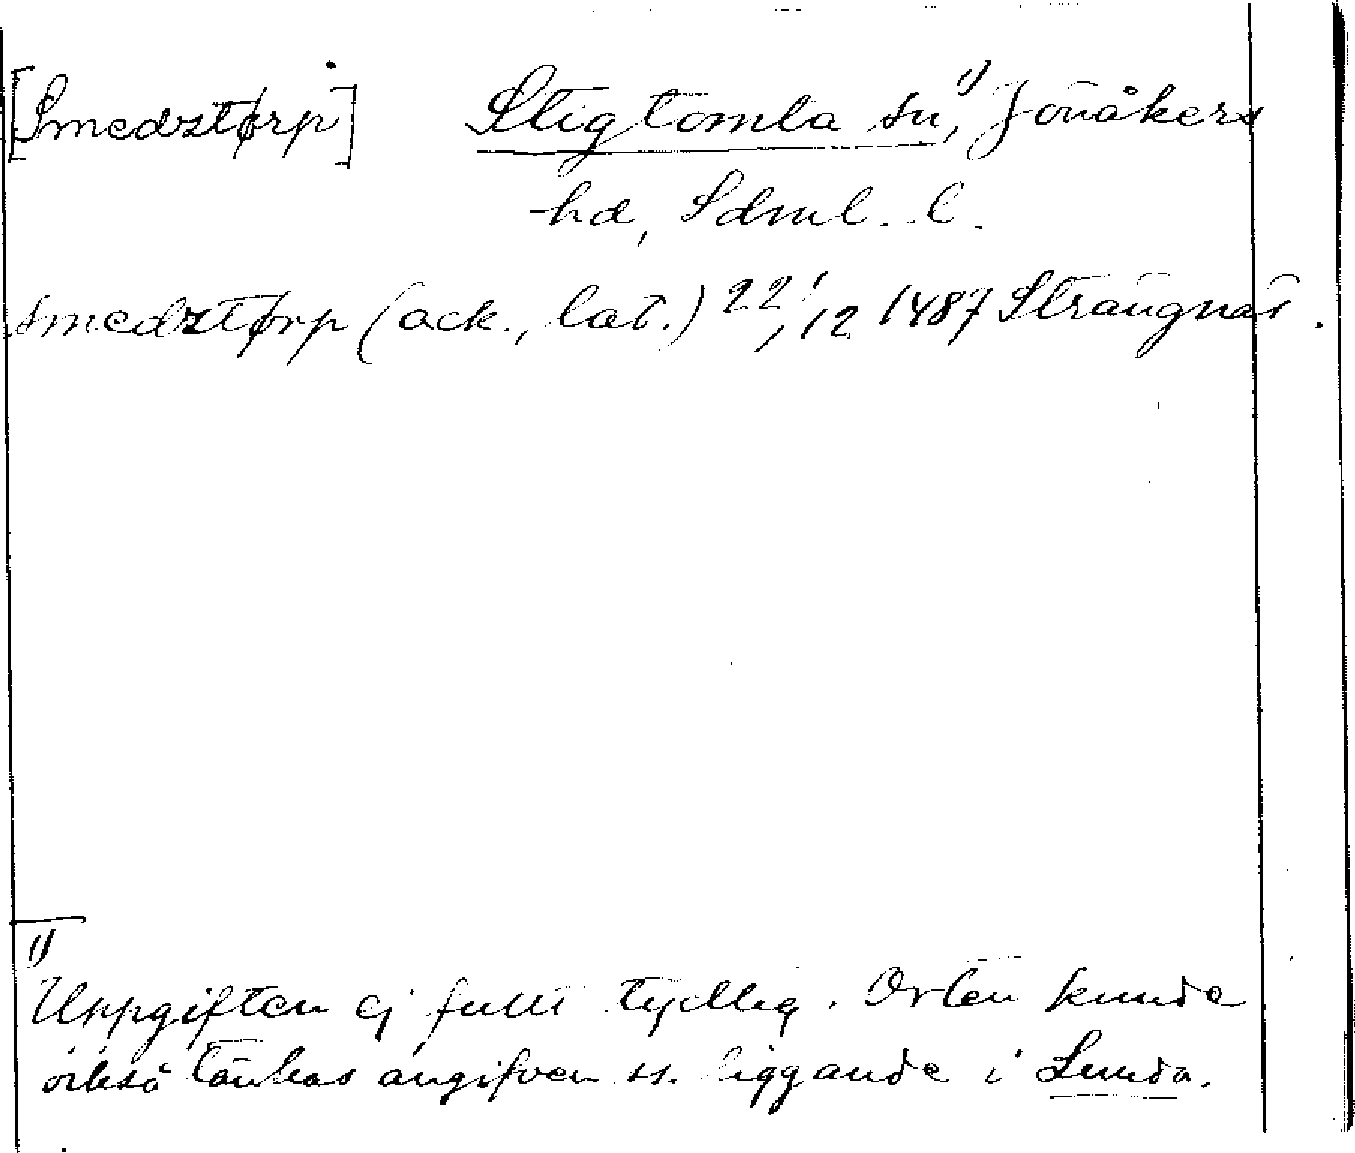 [Smedzstørp] Stigtomta sn,¹⁾ Jönåkers
hd, Sdml. l.
Smedzstørp (ack., lat.) 22/12 1487 Strängnäs.
1)
Uppgiften ej fullt tydlig. Orten kunde
också tänkas angifven ss. liggande i Lunda.